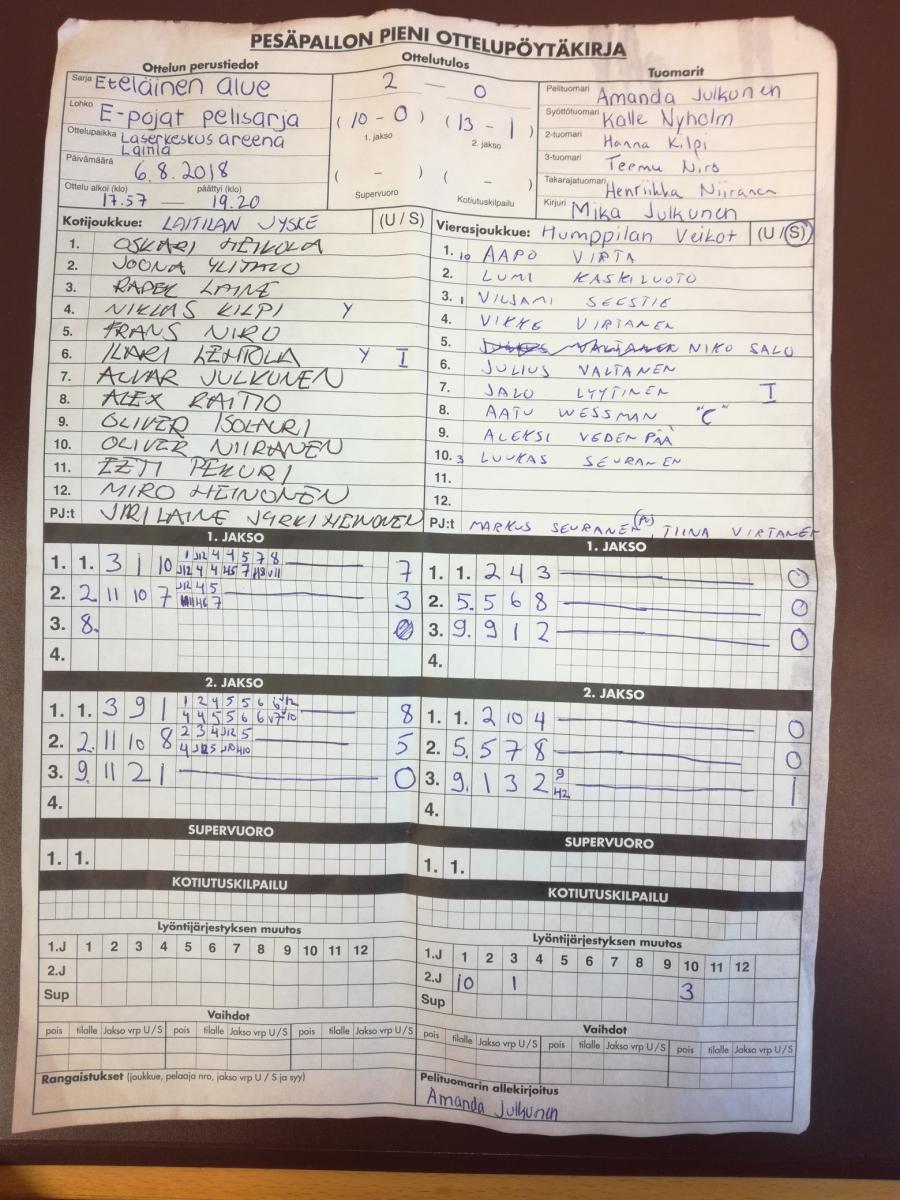 PESÄPALLON PIENI OTTELUPÖYTÄKIRJA
Ottelun perustiedot
Sarja Eteläinen alue
Lohko E-pojat pelisarja
Ottelupaikka Laserkeskus areena
Laitila
Päivämäärä 6.8.2018
Ottelu alkoi (klo) päättyi (klo)
17.57 — 19.20
Ottelutulos
2 — 0
(10 - 0) (13 - 1)
1. jakso 2. jakso
( - ) ( - )
Supervuoro Kotiutuskilpailu
Tuomarit
Pelituomari Amanda Julkunen
Syöttötuomari Kalle Nyholm
2-tuomari Hanna Kilpi
3-tuomari Teemu Niro
Takarajatuomari Henriikka Niiranen
Kirjuri Mika Julkunen
Kotijoukkue: LAITILAN JYSKE (U / S)
1. OSKARI HEIKOLA
2. JOONA YLITALO
3. LAINE
4. NIKLAS KILPI Y
5. FRANS NIRO
6. ILARI LEHTOLA Y I
7. ALVAR JULKUNEN
8. ALEX RAITIO
9. OLIVER ISOLAURI
10. OLIVER NIIRANEN
11. EETI PEKURI
12. MIRO HEINONEN
PJ:t JARI LAINE JYRKI HEINONEN
Vierasjoukkue: Humppilan Veikot (U / S)
1. 10 AAPO VIRTA
2. LUMI KASKILUOTO
3. 1 VILJAMI SEESTIE
4. VIKKE VIRTANEN
5. NIKO SALO
6. JULIUS VALTANEN
7. JALO LYYTINEN I
8. AATU WESSMAN "C"
9. ALEKSI VEDENPÄÄ
10. 3 LUUKAS SEURANEN
11.
12.
PJ:t MARKUS SEURANEN (PJ), TIINA VIRTANEN
1. JAKSO
1. 1. 3 1 10 7
2. 2. 11 10 7 3
3. 8. 0
4.
2. JAKSO
1. 1. 3 9 1 8
2. 2. 11 10 8 5
3. 9. 11 2 1 0
4.
SUPERVUORO
1. 1.
KOTIUTUSKILPAILU
Lyöntijärjestyksen muutos
1.J 1 2 3 4 5 6 7 8 9 10 11 12
2.J
Sup
Vaihdot
pois tilalle Jakso vrp U / S pois tilalle Jakso vrp U / S pois tilalle Jakso vrp U / S
Rangaistukset (joukkue, pelaaja nro, jakso vrp U / S ja syy)
1. JAKSO
1. 1. 2 4 3 0
2. 5. 5 6 8 0
3. 9. 9 1 2 0
4.
2. JAKSO
1. 1. 2 10 4 0
2. 5. 5 7 8 0
3. 9. 1 3 2 9 1
42
4.
SUPERVUORO
1. 1.
KOTIUTUSKILPAILU
Lyöntijärjestyksen muutos
1.J 1 2 3 4 5 6 7 8 9 10 11 12
2.J 10 1 3
Sup
Vaihdot
pois tilalle Jakso vrp U / S pois tilalle Jakso vrp U / S pois tilalle Jakso vrp U / S
Pelituomarin allekirjoitus
Amanda Julkunen